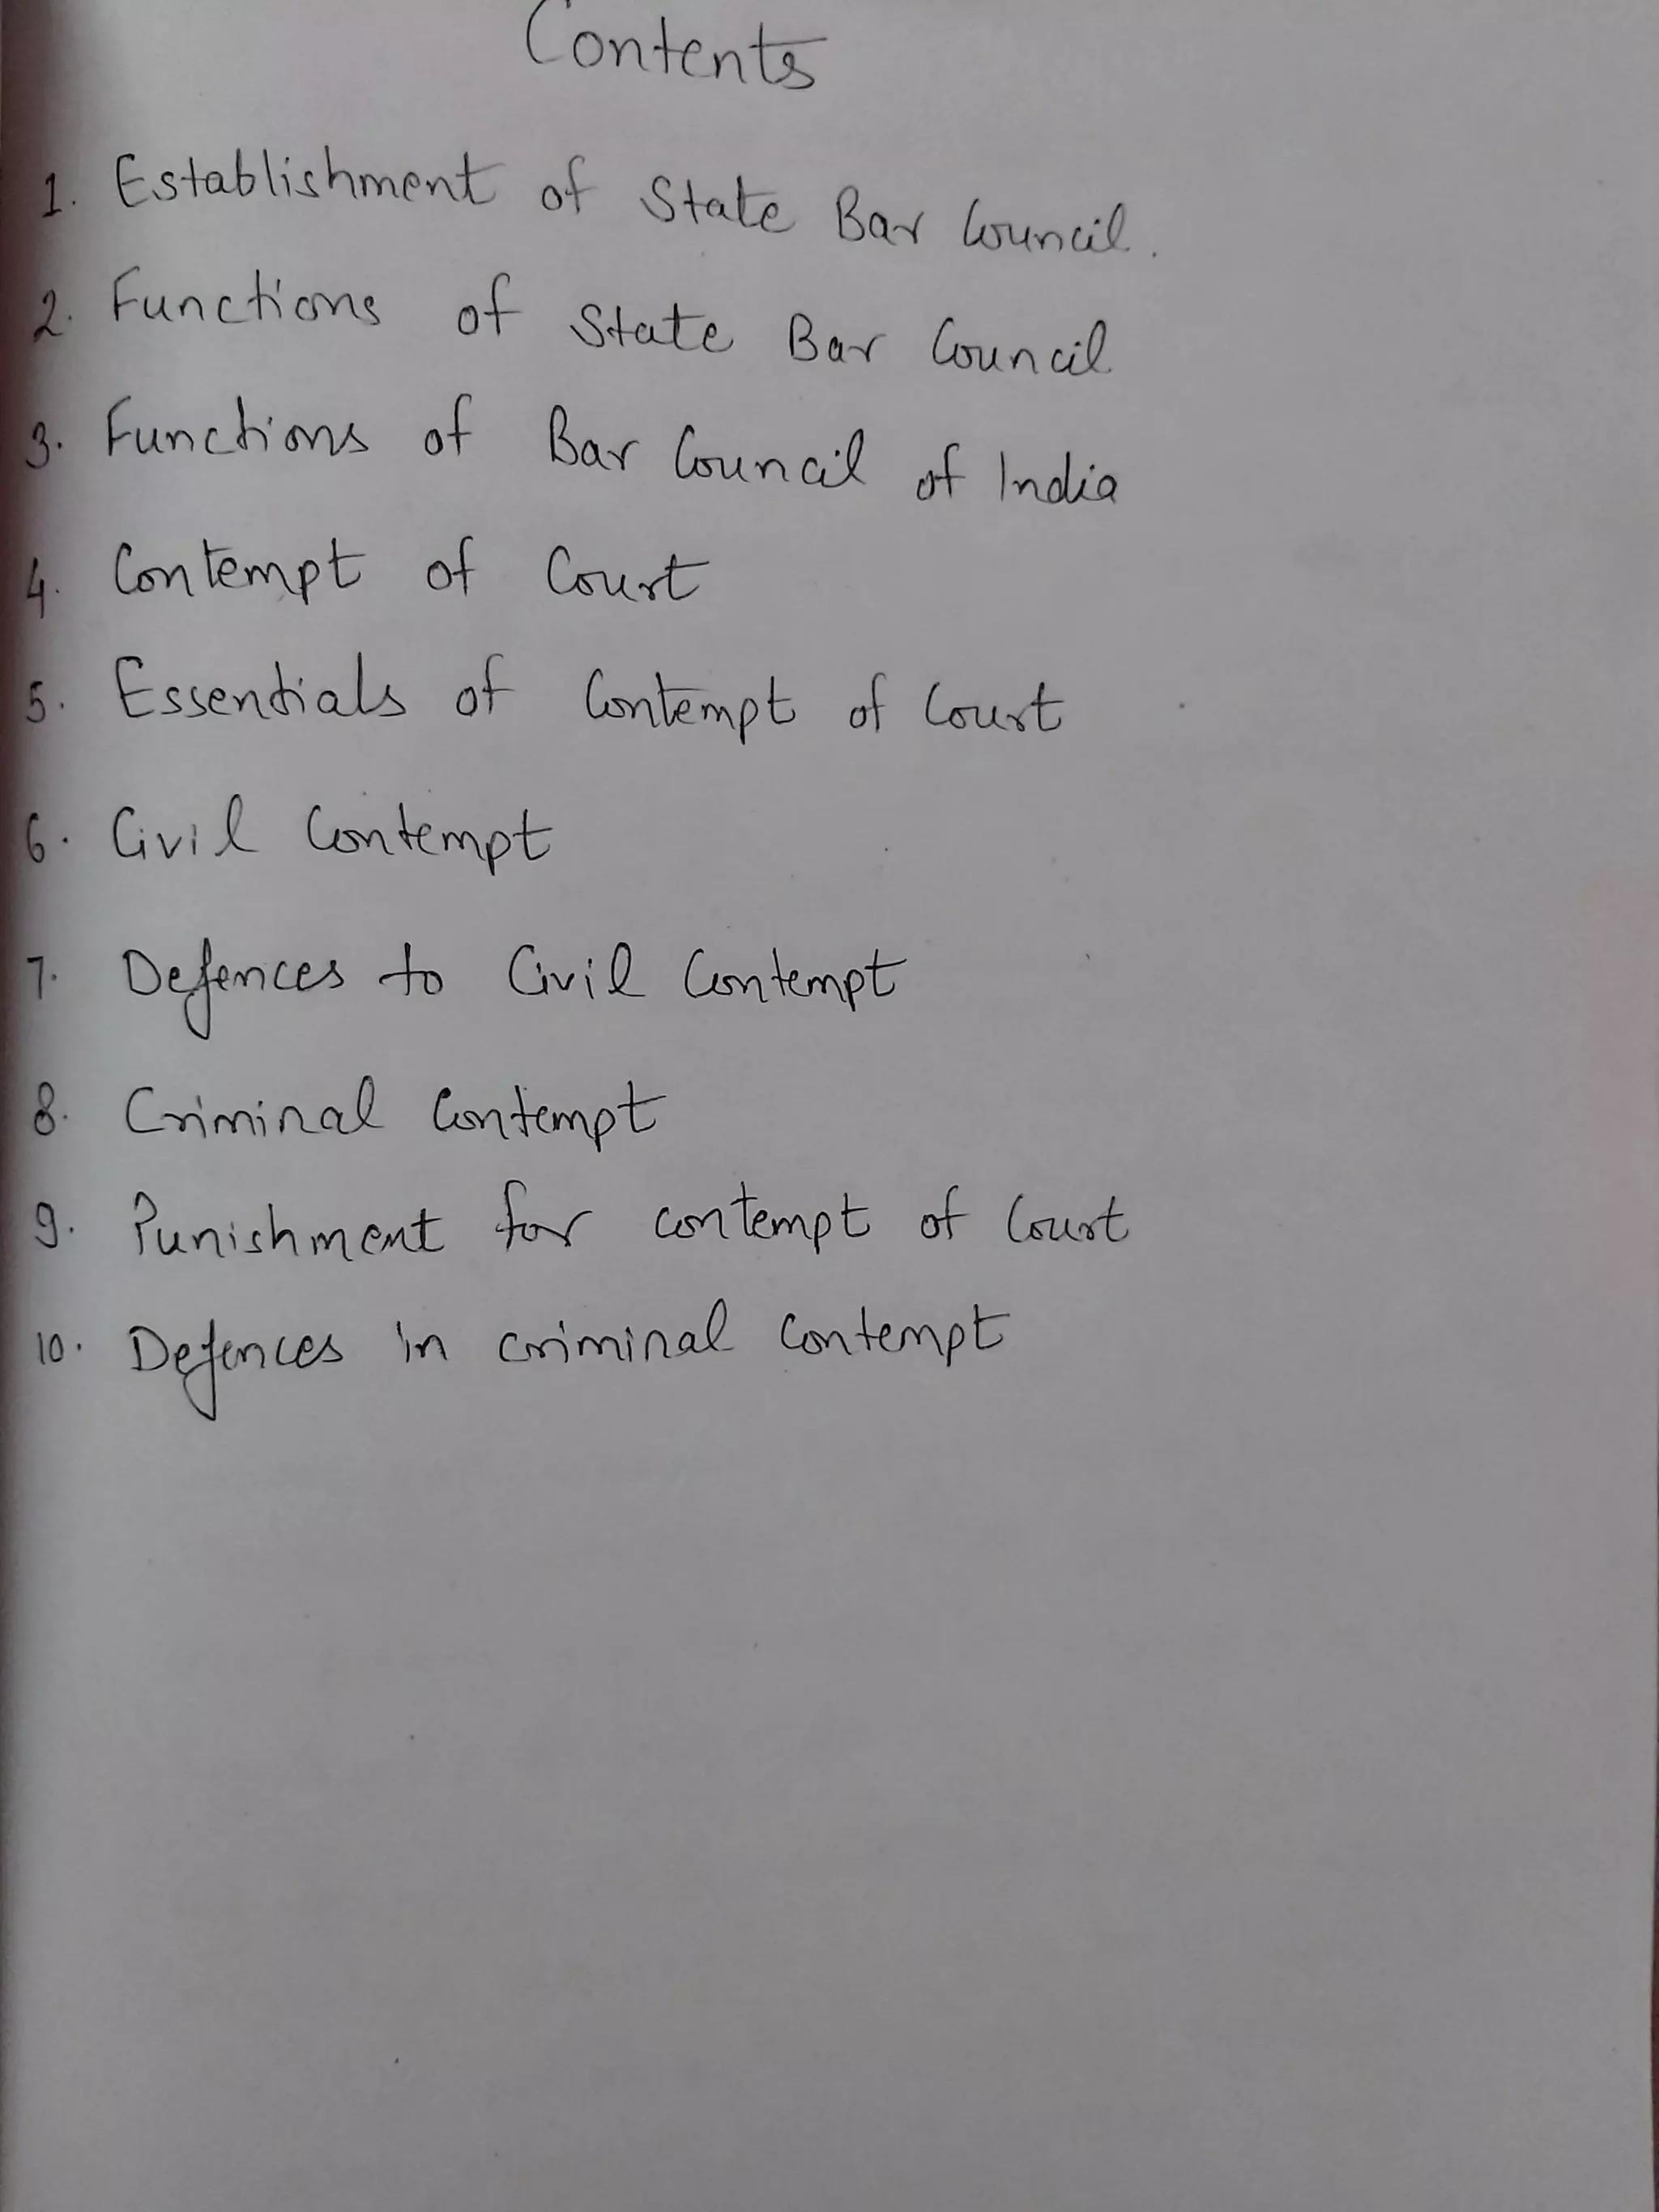 Contents
1. Establishment of State Bar Council.
2. Functions of State Bar Council
3. Functions of Bar Council of India
4. Contempt of Court
5. Essentials of Contempt of Court
6. Civil Contempt
7. Defences to Civil Contempt
8. Criminal Contempt
9. Punishment for contempt of Court
10. Defences in criminal Contempt